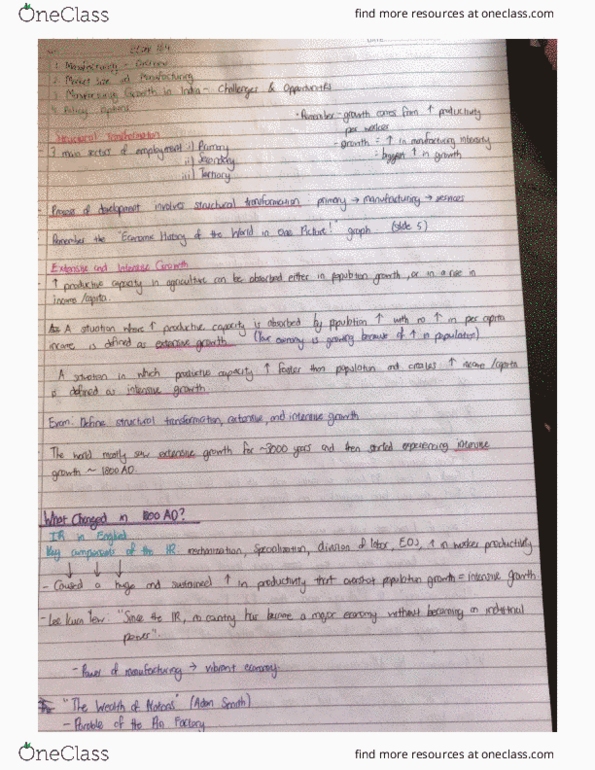 OneClass
find more resources at oneclass.com
Econ 164
1. Manufacturing - Overview
2. Market Size and Manufacturing
3. Manufacturing Growth in India - Challenges & Opportunities
4. Policy Options
- Remember - growth comes from ↑ productivity
per worker
- growth = ↑ in manufacturing intensity
= biggest ↑ in growth
Structural Transformation
3 main sectors of employment i) Primary
ii) Secondary
iii) Tertiary
- Process of development involves structural transformation: primary → manufacturing → services
- Remember the "Economic History of the World in One Picture!" graph (slide 5)
Extensive and Intensive Growth
- ↑ productive capacity in agriculture can be absorbed either in population growth, or in a rise in
income/capita.
A situation where ↑ productive capacity is absorbed by population ↑ with no ↑ in per capita
income is defined as extensive growth. (The economy is growing because of ↑ in population)
A situation in which productive capacity ↑ faster than population and creates ↑ income/capita
is defined as intensive growth
Exam: Define structural transformation, extensive, and intensive growth
- The world mostly saw extensive growth for ~3000 years and then started experiencing intensive
growth ~ 1800 AD.
What Changed in 1800 AD?
IR in England
Key components of the IR: mechanization, specialization, division of labor, EOS, ↑ in worker productivity
↓ ↓ ↓
- Caused a huge and sustained ↑ in productivity that overshot population growth = intensive growth
- Lee Kuan Yew: "Since the IR, no country has become a major economy without becoming an industrial
power".
- Power of manufacturing → vibrant economy
"The Wealth of Nations" (Adam Smith)
- Parable of the Pin Factory
OneClass
find more resources at oneclass.com